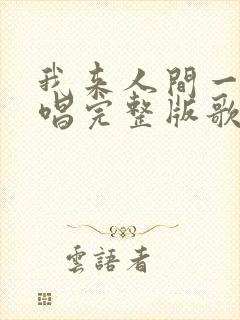 我来人間一
唱完整版歌
雲語者